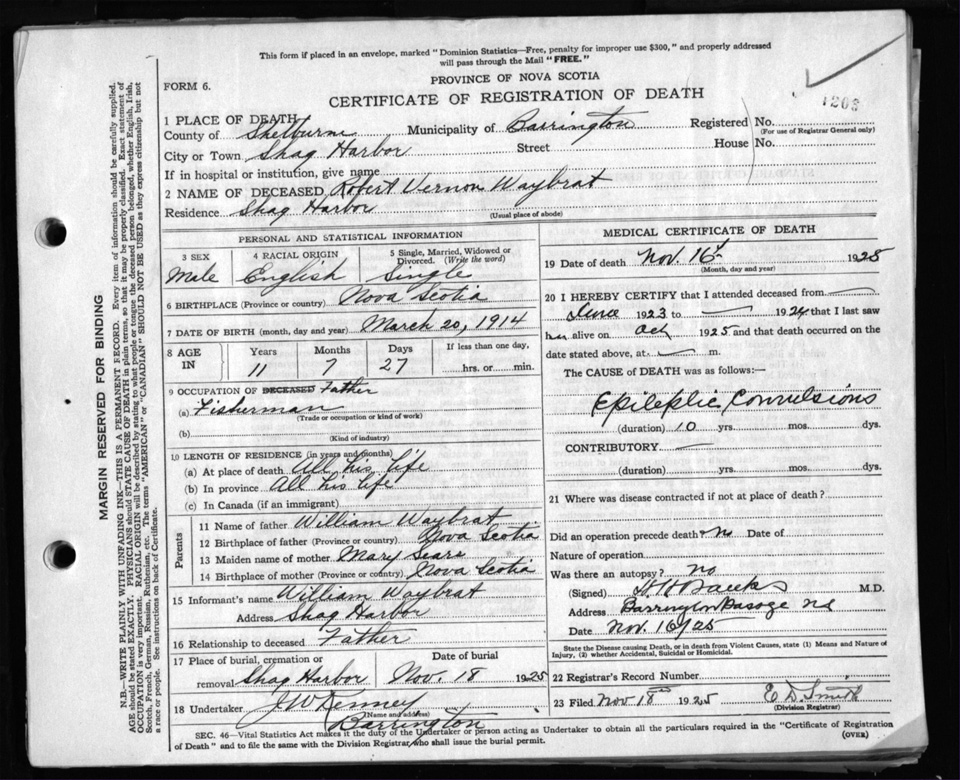 This form if placed in an envelope, marked "Dominion Statistics—Free, penalty for improper use $300," and properly addressed
will pass through the Mail "FREE."
PROVINCE OF NOVA SCOTIA
FORM 6.
CERTIFICATE OF REGISTRATION OF DEATH
1203
1 PLACE OF DEATH
County of Shelburne Municipality of Barrington Registered No.
(For use of Registrar General only)
City or Town Shag Harbor Street House No.
If in hospital or institution, give name
2 NAME OF DECEASED Robert Vernon Waybrat
Residence Shag Harbor
(Usual place of abode)
PERSONAL AND STATISTICAL INFORMATION
3 SEX 4 RACIAL ORIGIN 5 Single, Married, Widowed or
Divorced. (Write the word)
Male English Single
6 BIRTHPLACE (Province or country) Nova Scotia
7 DATE OF BIRTH (month, day and year) March 20, 1914
8 AGE IN Years Months Days If less than one day,
11 7 27 hrs. or min.
9 OCCUPATION OF DECEASED Father
(a) Fisherman
(Trade or occupation or kind of work)
(b)
(Kind of industry)
10 LENGTH OF RESIDENCE (in years and months)
(a) At place of death All his life
(b) In province All his life
(c) In Canada (if an immigrant)
Parents
11 Name of father William Waybrat
12 Birthplace of father (Province or country) Nova Scotia
13 Maiden name of mother Mary Sears
14 Birthplace of mother (Province or country) Nova Scotia
15 Informant's name William Waybrat
Address Shag Harbor
16 Relationship to deceased Father
17 Place of burial, cremation or Date of burial
removal Shag Harbor Nov. 18 1925
18 Undertaker J W Kenney
(Name and address)
Barrington
MEDICAL CERTIFICATE OF DEATH
19 Date of death Nov. 16 1925
(Month, day and year)
20 I HEREBY CERTIFY that I attended deceased from
June 1923 to 1924 that I last saw
alive on Oct 1925 and that death occurred on the
date stated above, at m.
The CAUSE of DEATH was as follows:—
Epileptic Convulsions
(duration) 10 yrs. mos. dys.
CONTRIBUTORY
(duration) yrs. mos. dys.
21 Where was disease contracted if not at place of death?
Did an operation precede death No Date of
Nature of operation
Was there an autopsy? no
(Signed) M.D.
Address Barrington Passage NS
Date Nov. 16/25
State the Disease causing Death, or in death from Violent Causes, state (1) Means and Nature of
Injury, (2) whether Accidental, Suicidal or Homicidal.
22 Registrar's Record Number
23 Filed Nov 18 1925 E D Smith
(Division Registrar)
SEC. 46—Vital Statistics Act makes it the duty of the Undertaker or person acting as Undertaker to obtain all the particulars required in the "Certificate of Registration
of Death" and to file the same with the Division Registrar who shall issue the burial permit. (OVER)
MARGIN RESERVED FOR BINDING
N.B.—WRITE PLAINLY WITH UNFADING INK—THIS IS A PERMANENT RECORD. Every item of information should be carefully supplied.
AGE should be stated EXACTLY. PHYSICIANS should STATE CAUSE OF DEATH in plain terms, so that it may be properly classified. Exact statement of
OCCUPATION is very important. RACIAL ORIGIN will be described by stating to what people or tongue the deceased person belonged, whether English, Irish,
Scotch, French, German, Russian, Ruthenian, etc. The terms "AMERICAN" or "CANADIAN" SHOULD NOT BE USED as they express citizenship but not
a race or people. See instructions on back of Certificate.